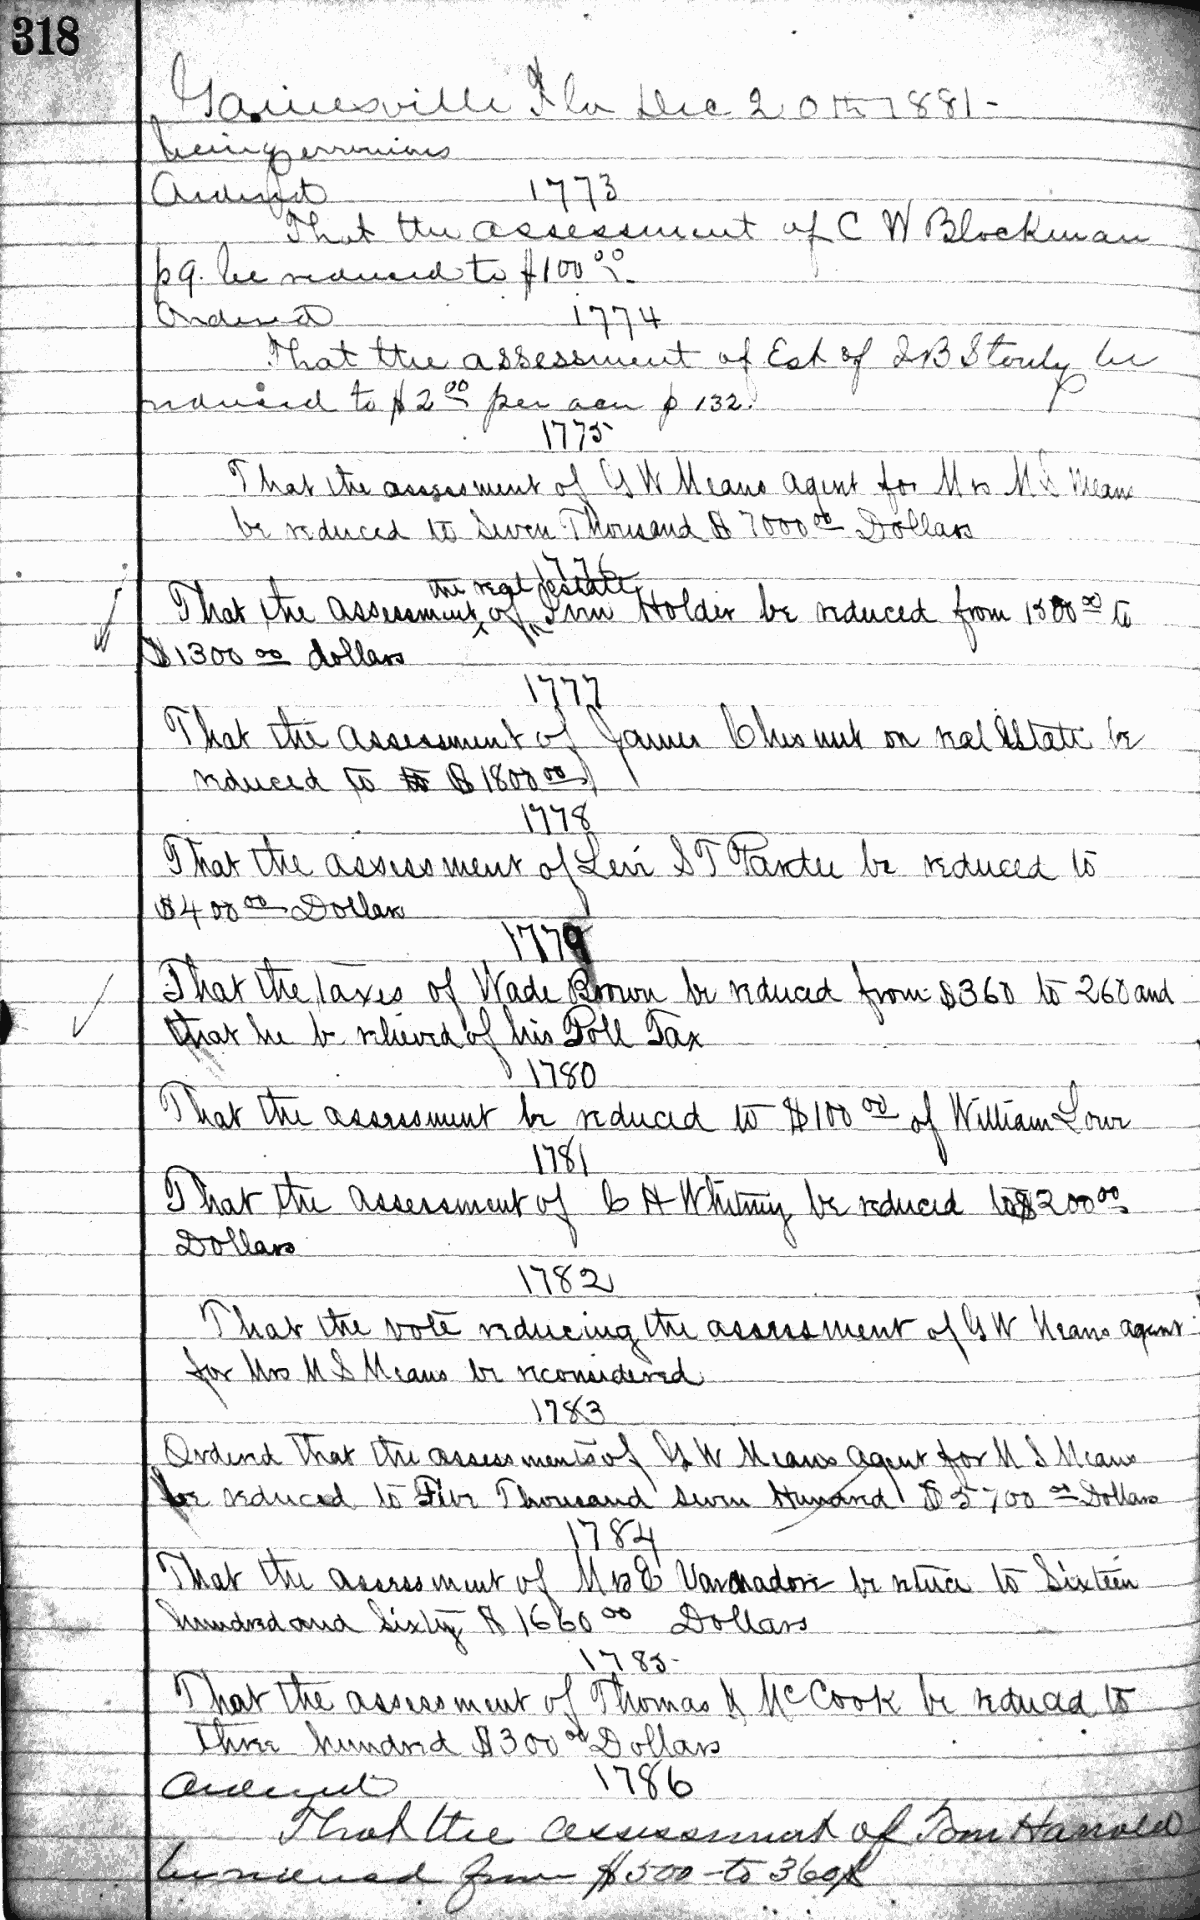 318
Gainesville Fla Dec 20th 1881-
being erronious
Ordered 1773
That the assessment of C W Blockman
pg. be reduced to $100 00
Ordered 1774
That the assessment of Est of J B Stouly be
reduced to $2 00 per acre p 132.
1775
That the assessment of G W Means agent for Mrs M S Means
be reduced to Seven Thousand $ 7000 00 Dollars
1776
the real estate
That the assessment of Finn Holder be reduced from 1500 00 to
$1300 00 dollars
1777
That the assessment of James Chesnut on real Estate be
reduced to to $ 1800 00
1778
That the assessment of Levi S T Pardee be reduced to
$400 00 Dollars
1779
That the taxes of Wade Brown be reduced from $360 to 260 and
that he be relieved of his Poll Tax
1780
That the assessment be reduced to $100 00 of William Lowe
1781
That the assessment of C H Whitney be reduced to $200 00
Dollars
1782
That the vote reducing the assessment of G W Means agent
for Mrs M S Means be reconsidered
1783
Ordered That the assessments of G W Means agent for M S Means
be reduced to Five Thousand Seven Hundred $5700 00 Dollars
1784
That the assessment of Mrs E Varnadore be to Sixteen
hundred and Sixty $ 1660 00 Dollars
1785
That the assessment of Thomas H McCook be reduced to
three hundred $300 00 Dollars
Ordered 1786
That the assessment of Tom Harrold
be reduced from $500 to 360